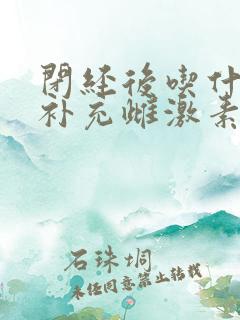 閉經後喫什
补充雌激素
石珠垌
未经同意禁止转载